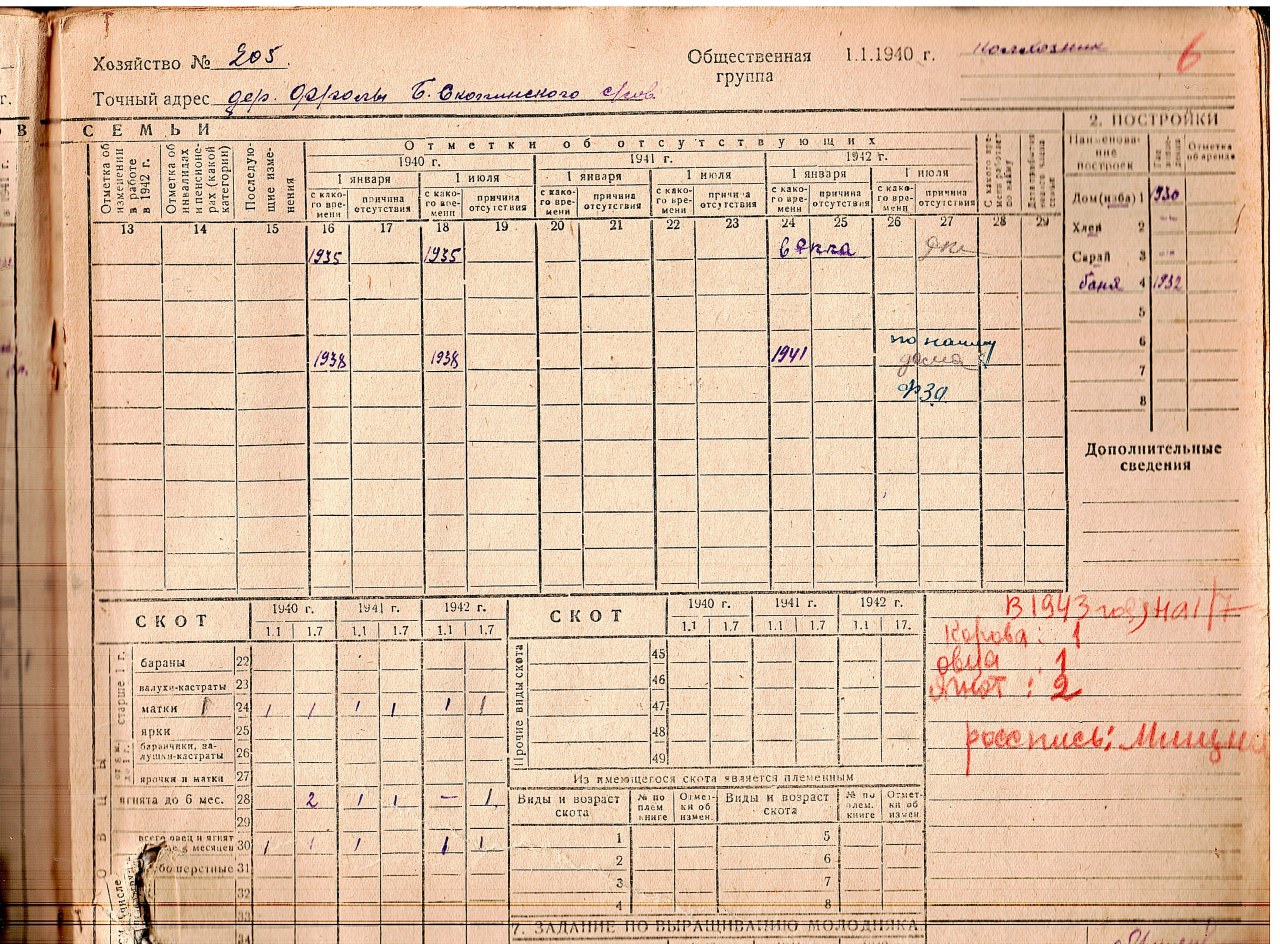 Хозяйство № 205.
Общественная группа 1.1.1940 г. колхозник
6
Точный адрес дер. Фролы Б. Скопинского с/сов
СЕМЬИ
Отметки об отсутствующих
1940 г. 1941 г. 1942 г.
1 января 1 июля 1 января 1 июля 1 января 1 июля
Отметка об изменении в работе в 1942 г.
Отметка об инвалидах и пенсионерах (какой категории)
Последующие изменения
с какого времени причина отсутствия с какого времени причина отсутствия с какого времени причина отсутствия с какого времени причина отсутствия с какого времени причина отсутствия с какого времени причина отсутствия
13 14 15 16 17 18 19 20 21 22 23 24 25 26 27 28 29
1935 1935
1938 1938 1941 по найму
дома
ФЗО
2. ПОСТРОЙКИ
Наименование построек
Отметка об аренде
Дом(изба) 1 1930
Хлев 2 -"-
Сарай 3 -"-
баня 4 1932
5
6
7
8
Дополнительные сведения
СКОТ 1940 г. 1941 г. 1942 г.
1.1 1.7 1.1 1.7 1.1 1.7
старше 1 г.
бараны 22
валухи-кастраты 23
матки 1 24 1 1 1 1 1 1
ярки 25
баранчики, валушки-кастраты 26
ярочки и матки 27
ягнята до 6 мес. 28 2 1 1 — 1
29
всего овец и ягнят
месяцев 30 1 1 1 1 1
31
32
33
34
СКОТ 1940 г. 1941 г. 1942 г.
1.1 1.7 1.1 1.7 1.1 17.
Прочие виды скота
45
46
47
48
49
Из имеющегося скота является племенным
Виды и возраст скота № по плем. книге Отметки об измен. Виды и возраст скота № по плем. книге Отметки об измен.
1 5
2 6
3 7
4 8
7. ЗАДАНИЕ ПО ВЫРАЩИВАНИЮ МОЛОДНЯКА
В 1943 году на 1/7
Корова: 1
овца : 1
ягнят : 2
росспись: